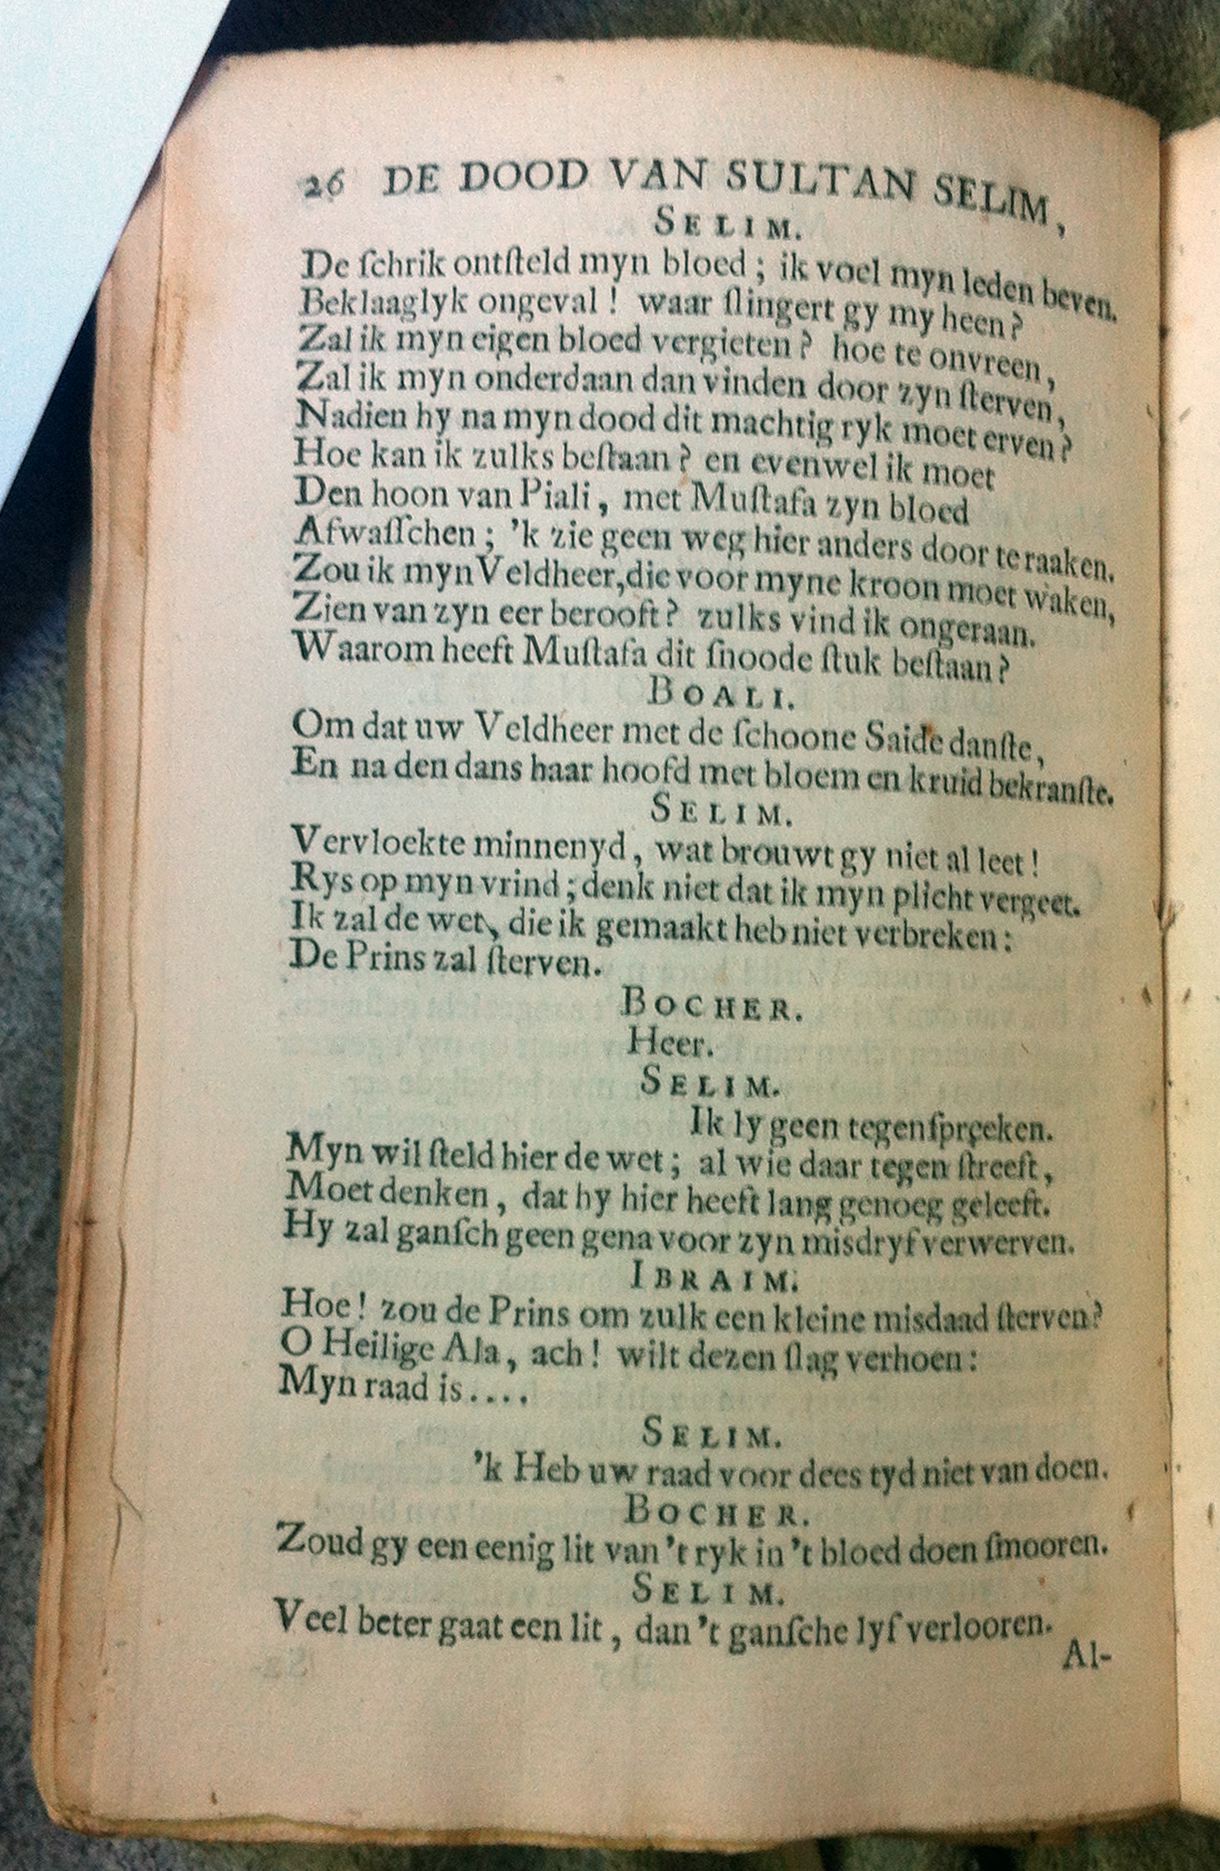 26 DE DOOD VAN SULTAN SELIM,
SELIM.
De ſchrik ontſteld myn bloed; ik voel myn leden beven.
Beklaaglyk ongeval! waar ſlingert gy my heen?
Zal ik myn eigen bloed vergieten? hoe te onvreen,
Zal ik myn onderdaan dan vinden door zyn ſterven,
Nadien hy na myn dood dit machtig ryk moet erven?
Hoe kan ik zulks beſtaan? en evenwel ik moet
Den hoon van Piali, met Muſtafa zyn bloed
Afwaſſchen; 'k zie geen weg hier anders door te raaken.
Zou ik myn Veldheer, die voor myne kroon moet waken,
Zien van zyn eer berooft? zulks vind ik ongeraan.
Waarom heeft Muſtafa dit ſnoode ſtuk beſtaan?
BOALI.
Om dat uw Veldheer met de ſchoone Saide danſte,
En na den dans haar hoofd met bloem en kruid bekranſte.
SELIM.
Vervloekte minnenyd, wat brouwt gy niet al leet!
Rys op myn vrind; denk niet dat ik myn plicht vergeet.
Ik zal de wet, die ik gemaakt heb niet verbreken:
De Prins zal ſterven.
BOCHER.
Heer.
SELIM.
Ik ly geen tegenſpreeken.
Myn wil ſteld hier de wet; al wie daar tegen ſtreeft,
Moet denken, dat hy hier heeft lang genoeg geleeft.
Hy zal ganſch geen gena voor zyn misdryf verwerven.
IBRAIM.
Hoe! zou de Prins om zulk een kleine misdaad ſterven?
O Heilige Ala, ach! wilt dezen ſlag verhoen:
Myn raad is....
SELIM.
'k Heb uw raad voor dees tyd niet van doen.
BOCHER.
Zoud gy een eenig lit van 't ryk in 't bloed doen ſmooren.
SELIM.
Veel beter gaat een lit, dan 't ganſche lyf verlooren.
Al-